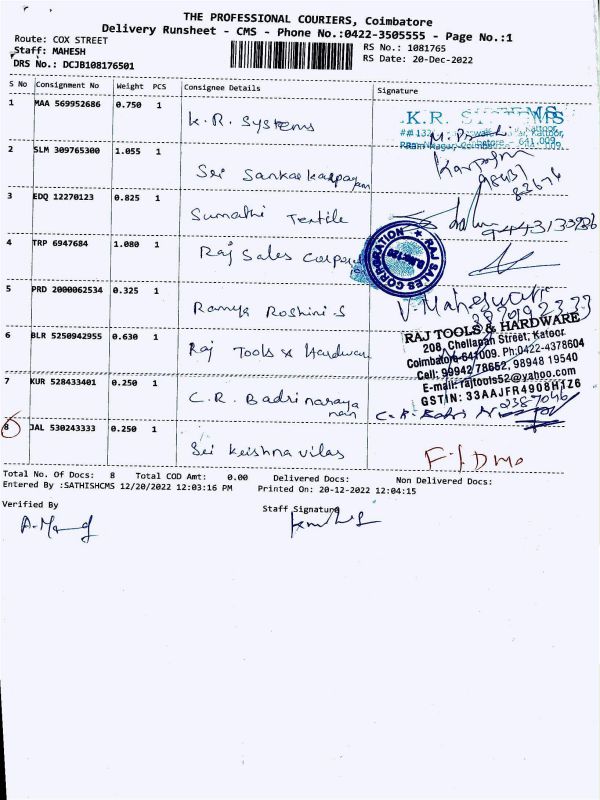 THE PROFESSIONAL COURIERS, Coimbatore
Delivery Runsheet - CMS - Phone No.:0422-3505555 - Page No.:1
Route: COX STREET
Staff: MAHESH
DRS No.: DCJB108176501
RS No.: 1081765
RS Date: 20-Dec-2022
S No Consignment No Weight PCS Consignee Details Signature
1 MAA 569952686 0.750 1 K.R. Systems
K.R.
2 SLM 309765300 1.055 1 Sri Sankarkarpagam
Karpagam
98431
82676
3 EDQ 12270123 0.825 1 Sumathi Textile
4 TRP 6947684 1.080 1 Raj Sales Corpora
RAJ SALES CORPORATION
5 PRD 2000062534 0.325 1 Ramya Roshini.S
V.Maheswari
6 BLR 5250942955 0.630 1 Raj Tools & Hardware
RAJ TOOLS & HARDWARE
208, Chellapan Street, Katoor
Coimbatore-641009. Ph:0422-4378604
Cell: 99942 78652, 98948 19540
E-mail: rajtools52@yahoo.com
GSTIN: 33AAJFR4908H1Z6
7 KUR 528433401 0.250 1 C.R. Badrinaraya
nan
8 JAL 530243333 0.250 1 Sri Krishna vilas
Total No. Of Docs: 8 Total COD Amt: 0.00 Delivered Docs: Non Delivered Docs:
Entered By :SATHISHCMS 12/20/2022 12:03:16 PM Printed On: 20-12-2022 12:04:15
Verified By
Staff Signature